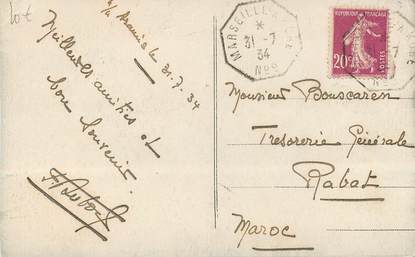 lot
31.7.34
Meilleures amitiés et
bon Souvenir.
MARSEILLE
*
31-7
34
N°2
REPUBLIQUE FRANÇAISE
20c
POSTES
Monsieur Bouscaren
Tresorerie Générale
Rabat
Maroc